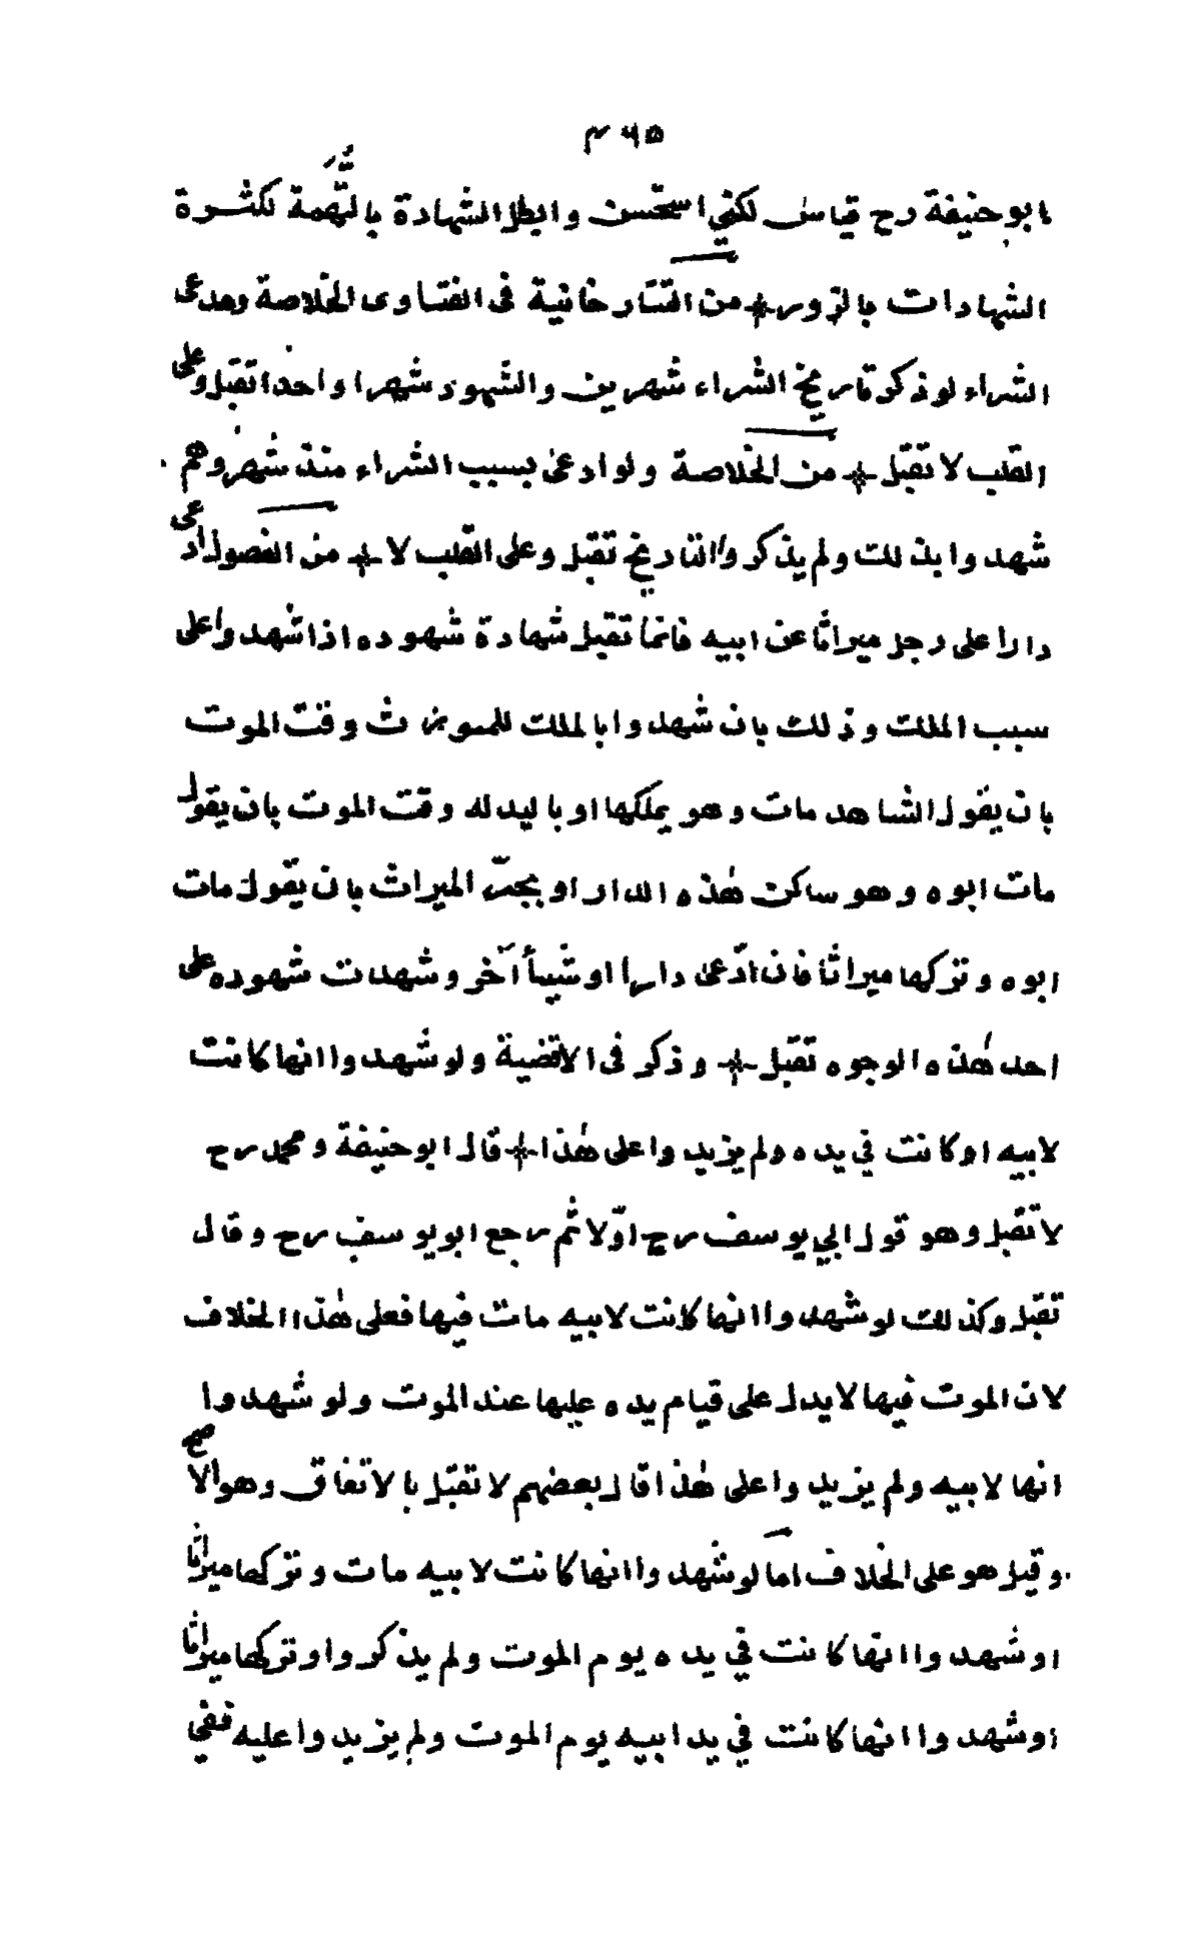 ٤٦٥
ابو حنيفة رح قياس لكني استحسن وابطل الشهادة بالتُّهَمة لكثرة
الشهادات بالزور + من التتار خانية فى الفتاوى الخلاصة ومدعى
الشراء لو ذكر تاريخ الشراء شهرين والشهود شهرا واحدا تقبل وعلى
القلب لا تقبل + من الخلاصة ولو ادعى بسبب الشراء منذ شهر وهم
شهدوا بذلك ولم يذكروا التاريخ تقبل وعلى القلب لا + من الفصول ادعى
دارا على رجل ميراثا عن ابيه فانما تقبل شهادة شهوده اذا شهدوا على
سبب الملك وذلك بان شهدوا بالملك للمورث وقت الموت
بان يقول الشاهد مات وهو يملكها او باليد له وقت الموت بان يقول
مات ابوه وهو ساكن هٰذه الدار او بجرّ الميراث بان يقول مات
ابوه وتركها ميراثا فان ادّعى دارا او شيأ آخر وشهدت شهوده على
احد هٰذه الوجوه تقبل + وذكر فى الاقضية ولو شهدوا انها كانت
لابيه او كانت في يده ولم يزيدوا على هٰذا + قال ابو حنيفة ومحمد رح
لا تقبل وهو قول ابي يوسف رح اوّلا ثم رجع ابو يوسف رح وقال
تقبل وكذلك لو شهدوا انها كانت لابيه مات فيها فعلى هٰذا الخلاف
لان الموت فيها لا يدل على قيام يده عليها عند الموت ولو شهدوا
انها لابيه ولم يزيدوا على هٰذا قال بعضهم لا تقبل بالاتفاق وهو الاصح
وقيل هو على الخلاف اما لو شهدوا انها كانت لابيه مات وتركها ميراثا
او شهدوا انها كانت في يده يوم الموت ولم يذكروا وتركها ميراثا
او شهدوا انها كانت في يد ابيه يوم الموت ولم يزيدوا عليه ففي